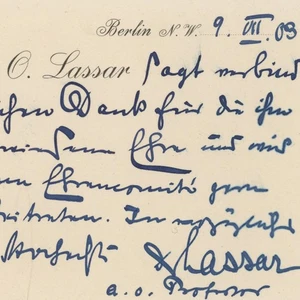 Berlin N. W. 9. VII. 03
O. Lassar sagt verbind
chen Dank für die ihm
wiesene Ehre und wird
em Ehrencomité gern
beitreten. In vorzüglichs
Hochacht
OLassar
a. o. Professor